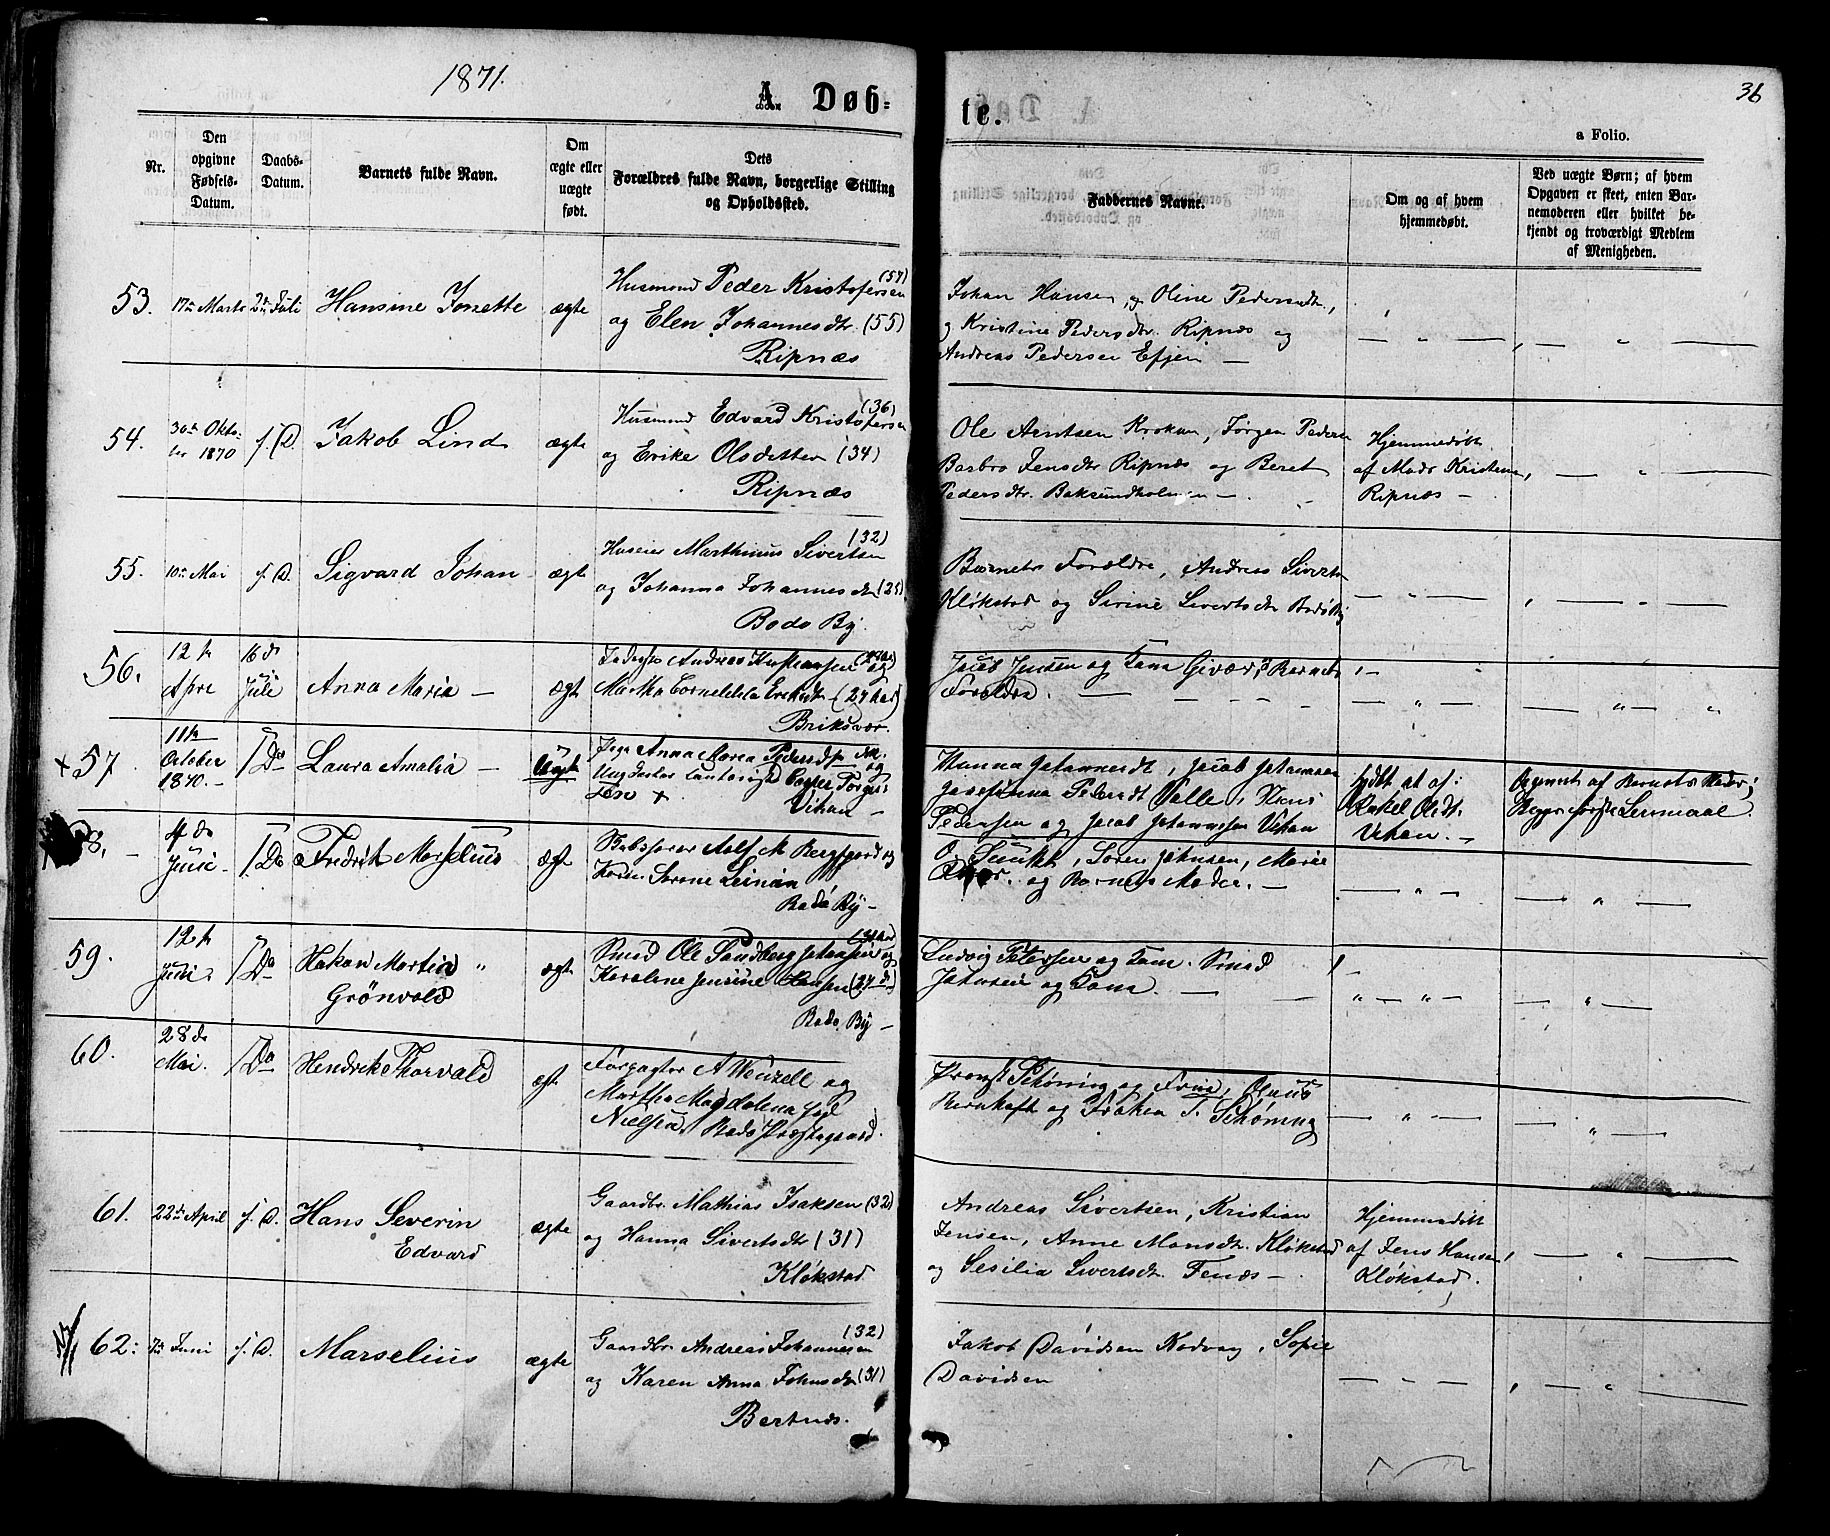 1871.
A. Døb-
te.
36
a Folio.
Nr.
Den
opgivne
Fødsels-
Datum.
Daabs-
Datum.
Barnets fulde Navn.
Om
ægte eller
uægte
født.
Dets
Forældres fulde Navn, borgerlige Stilling
og Opholdssted.
Faddernes Navne.
Om og af hvem
hjemmedøbt.
Ved uægte Børn; af hvem
Opgaven er skeet, enten Bar-
nemoderen eller hvilket be-
kjendt og troværdigt Medlem
af Menigheden.
53. 17de Marts 2de Juli Hansine Jonette ægte
Husmand Peder Kristofersen (57)
og Elen Johannesdtr. (55)
Ripnæs
Johan Hansen, og Oline Pedersdtr,
og Kristine Pedersdtr. Ripnæs og
Andreas Pedersen Efjen —
— " — — " —
54. 30de Okto-
ber 1870 f. D. Jakob Lind ægte
Husmand Edvard Kristofersen (36)
og Erike Olsdatter (34)
Ripnæs
Ole Arntsen Krokan, Jørgen Peders
Barbro Jensdtr Ripnæs og Beret
Pedersdtr. Baksundholmen —
Hjemmedøbt
af Mads Kristensen,
Ripnæs —
— " —
55. 10de Mai f. D. Sigvard Johan ægte
Huseier Marthinus Sivertsen (32)
og Johanna Johannesdtr (25)
Bodø By.
Barnets Forældre, Andreas Sivertsen
Kløkstad og Sirine Sivertsdtr Bodø By
— " — — " —
56. 12te
Apri 16de
Juli Anna Maria — ægt
Andreas Kristiansen og
Martha Cornelila (24 Aar)
Briksvær.
Jacob Jensen og Kona Givær, Barnets
Forældre. —
— " — — " "
+ 57 11te
October
1870. — / Do Laura Amalia — Uægt
Pige Anna Maria Pedersd og
Ung Casper Torger-
sen +
Vikan —
Hanna Johannesdt, Jacob Johannsen
Josefinna Pedersdt Valle,
Pedersen og Jacob Johannsen Vikan
født at af:
Rakel Olsdt.
Vikan. —
Opgivet af Barnets Moder;
58. — 4de
Juni — / Do Fredrik Marselius ægt
Adolf M. Bergsgard og
Kone Sorene
Bodø By —
O. Søren Johnsen, Marie
og Barnets Moder. —
— " — — " —
59. 12te
Juni. / Do Hakon Martin "
Grønvold ægt
Smed Ole Sandberg Johansen og
Karolene Jensine Hansen (24 d)
Bodø By —
Ludvig Petersen og Kone. Smed
Johnsen og Kona. —
" — " — — " —
60. 28de
Mai. / Do Hendrik Thorvald ægt
Forpagter A Wenzell og
Martha Magdalena
Nielsen. Bodø Præstegaard.
Provst Schøning og Frue, Olaus
Bernhoft og Frøken T. Schøning
— " — — " —
61. 22de April f. D. Hans Severin
Edvard ægte
Gaardbr. Mathias Isaksen (32)
og Hanna Sivertsdtr (31)
Kløkstad
Andreas Sivertsen, Kristian
Jensen, Anne Monsdtr. Kløkstad
og Sesilia Sivertsdtr. Fenæs —
Hjemmedøbt
af Jens Hansen,
Kløkstad.
— " —
62: 7de Juni f. D. Marselius ægte
Gaardbr Andreas Johannesen (32)
og Karen Anna Johnsdtr (31)
Bertnæs.
Jakob Davidsen Nordvag, Sofie
Davidsen
— " — — " —